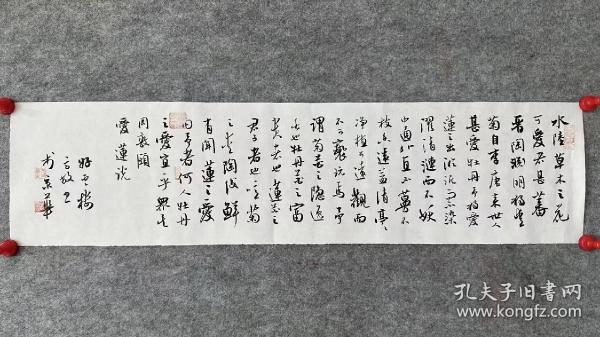 水陸草木之花
可愛者甚蕃
晋陶淵明獨愛
菊自李唐来世人
甚愛牡丹予獨愛
蓮之出淤泥而不染
濯清漣而不妖
中通外直不蔓不
枝香遠益清亭々
淨植可遠觀而
不可褻玩焉予
謂菊花之隱逸
者也牡丹花之富
貴者也蓮花之
君子者也噫菊
之愛陶後鮮
有聞蓮之愛
同予者何人牡丹
之愛宜乎衆矣
周敦頤
愛蓮説
孔夫子旧书网
www.kongfz.com